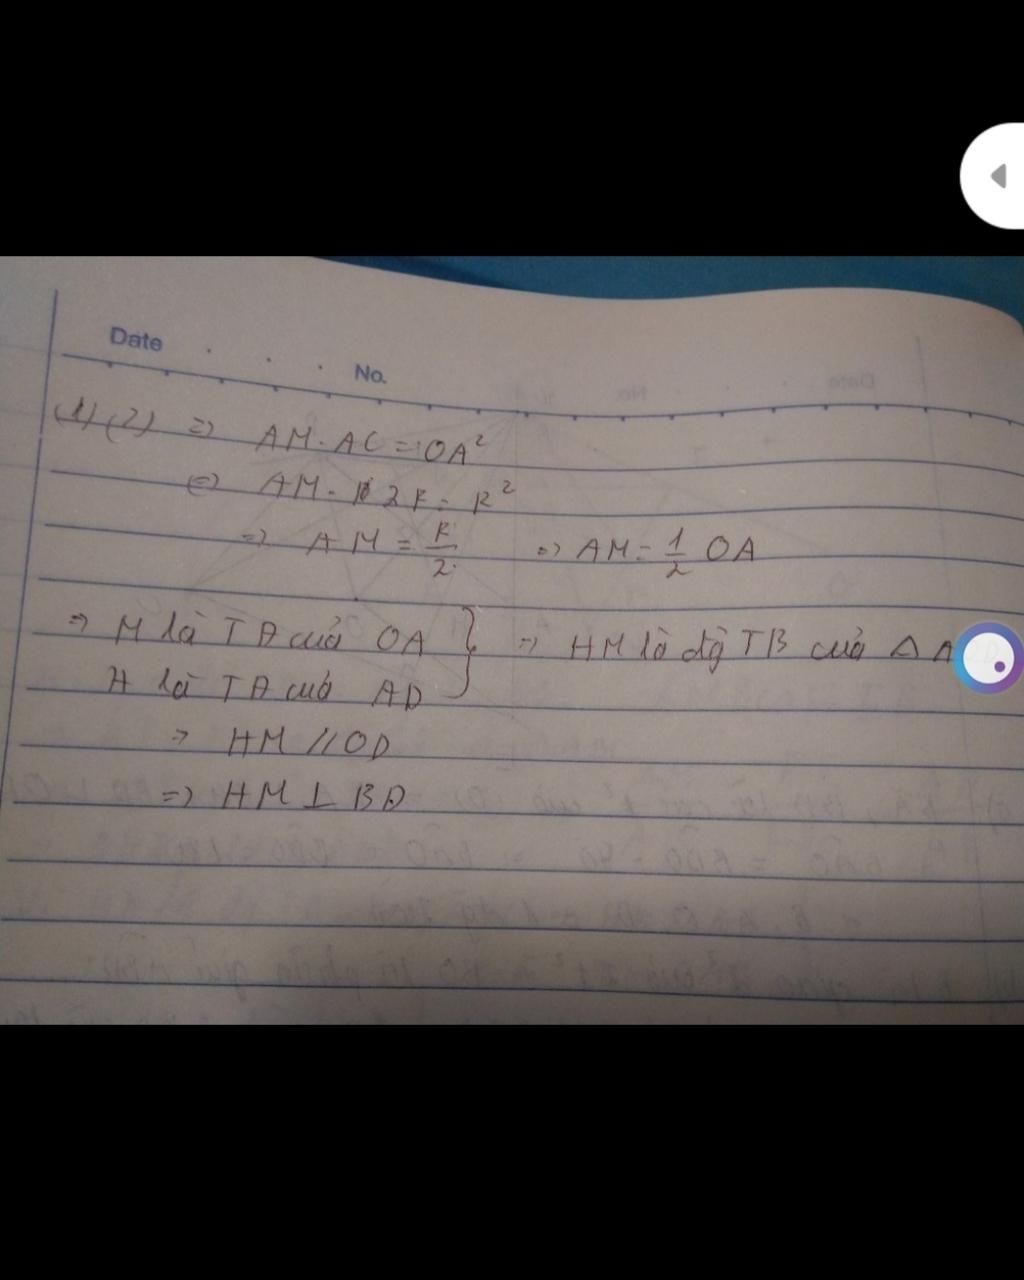 Date
No.
(1)(2) => AM.AC = OA²
<=> AM. 2R = R²
=> AM = R/2 => AM = 1/2 OA
=> M là TĐ của OA } => HM là đg TB của Δ A
H là TĐ của AD
=> HM // OD
=> HM ⊥ BD